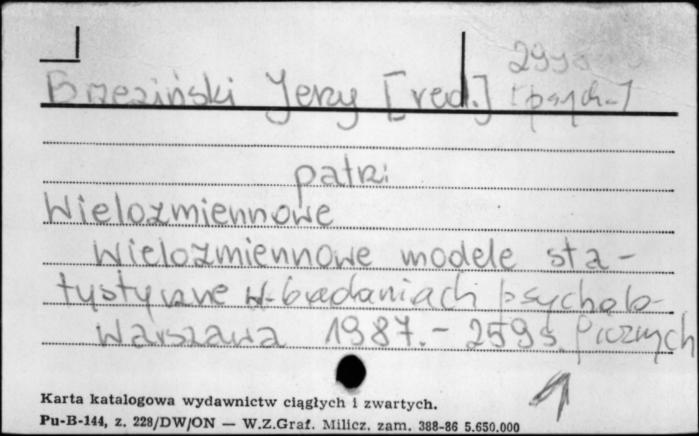 Brzeziński Jerzy [red.] [psych.]
patrz:
Wielozmiennowe
Wielozmiennowe modele sta-
tystyczne w badaniach psycholo-
gicznych
Warszawa 1987. - 259 s.
Karta katalogowa wydawnictw ciągłych i zwartych.
Pu-B-144, z. 228/DW/ON — W.Z.Graf. Milicz, zam. 388-86 5.650.000